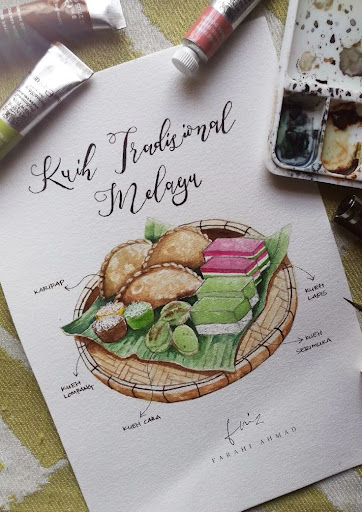 Kuih Tradisional
Melayu
KARIPAP
KUEH
LAPIS
KUEH
SERIMUKA
KUEH
LOMPANG
KUEH CARA
FARAHI AHMAD